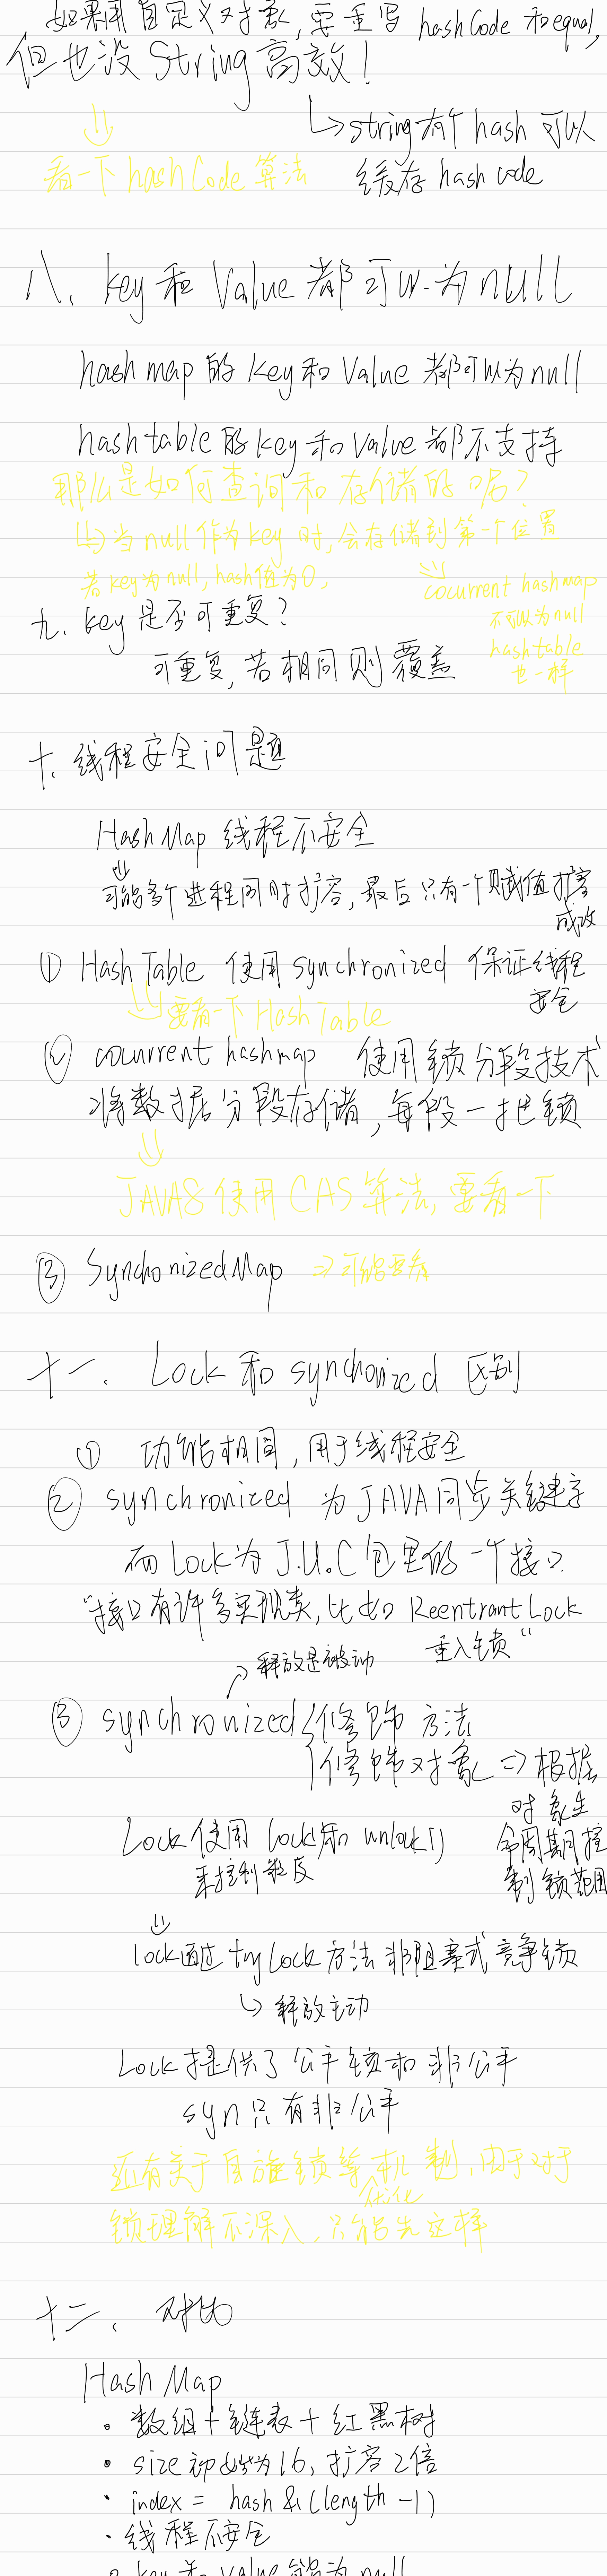 如果用自定义对象,要重写 hashCode 和 equal,
但也没 String 高效!
↳ string 有个 hash 可以
缓存 hash code
⇓
看一下 hashCode 算法
八、key 和 Value 都可以为 null
hash map 的 key 和 Value 都可以为 null
hashtable 的 key 和 value 都不支持
那么是如何查询和存储的呢?
↳ 当 null 作为 key 时,会存储到第一个位置
若 key 为 null, hash 值为 0,
⇓ cocurrent hashmap
不可以为 null
hashtable
也一样
九、key 是否可重复?
可重复,若相同则覆盖
十、线程安全问题
Hash Map 线程不安全
⇓
可能多个进程同时扩容,最后只有一个赋值扩容
成功
① Hash Table 使用 synchronized 保证线程
安全
⇓ 要看一下 Hash Table
② cocurrent hashmap 使用锁分段技术
将数据分段存储,每段一把锁
⇓
JAVA8 使用 CAS 算法,要看一下
③ SynchonizedMap ⇒ 可能要看
十一、Lock 和 synchonized 区别
① 功能相同,用于线程安全
② synchronized 为 JAVA 同步关键字
而 Lock 为 J.U.C 包里的一个接口
"接口有许多实现类,比如 Reentrant Lock
重入锁"
↗ 释放是被动
③ synchronized { 修饰 方法
修饰对象 ⇒ 根据
对象生
命周期控
制锁范围
Lock 使用 lock 和 unlock()
来控制粒度
⇓
lock 通过 try Lock 方法 非阻塞式竞争锁
↳ 释放主动
Lock 提供了公平锁和非公平
syn 只有非公平
还有关于自旋锁等机制,由于对于
优化
锁理解不深入,只能先这样
十二、对比
Hash Map
· 数组+链表+红黑树
· size 初始为 16, 扩容 2 倍
· index = hash & (length - 1)
· 线程不安全
· key 和 value 能为 null